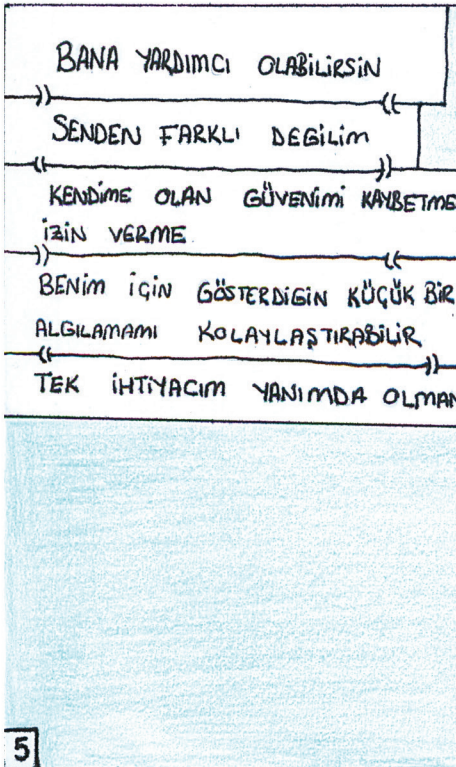 BANA YARDIMCI OLABİLİRSİN
SENDEN FARKLI DEGİLİM
KENDİME OLAN GÜVENİMİ KAYBETME
İZİN VERME
BENİM İÇİN GÖSTERDİGİN KÜÇÜK BİR
ALGILAMAMI KOLAYLAŞTIRABİLİR
TEK İHTİYACIM YANIMDA OLMAN
5